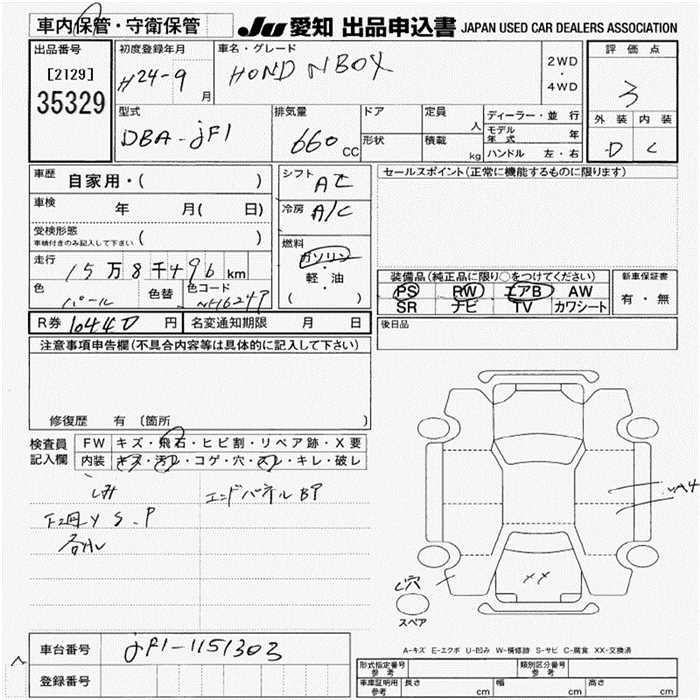 車内保管・守衛保管 JU 愛知 出品申込書 JAPAN USED CAR DEALERS ASSOCIATION
出品番号
[2129]
35329
初度登録年月
H24-9月
車名・グレード
HOND NBOX
2WD
・
4WD
評価点
3
外装 内装
D C
型式
DBA-JF1
排気量
660 CC
ドア
形状
定員
人
積載
kg
ディーラー・並行
モデル年式 年
ハンドル 左・右
車歴 自家用・( )
車検 年 月( 日)
受検形態
車検付きのみ記入して下さい ( )
走行 15万8千496km
色 パール
色替
色コード NH624P
シフト AT
冷房 A/C
燃料
ガソリン
・
軽・油
( )
R券 10440 円 名変通知期限 月 日
セールスポイント(正常に機能するものに限ります)
装備品(純正品に限り○をつけてください)
PS PW エアB AW
SR ナビ TV カワシート
新車保証書
有・無
後日品
注意事項申告欄(不具合内容等は具体的に記入して下さい)
修復歴 有 (箇所 )
検査員
記入欄
FW キズ・飛石・ヒビ割・リペア跡・X要
内装 キズ・汚れ・コゲ・穴・スレ・キレ・破レ
シミ
エンドパネルBP
S.P
A4
穴
XX
スペア
A-キズ E-エクボ U-凹み W-補修跡 S-サビ C-腐食 XX-交換済
車台番号 JF1-1151303
登録番号
形式指定番号
参考
類別区分番号
参考
車庫証明用
参考
長さ cm 幅 cm 高さ cm